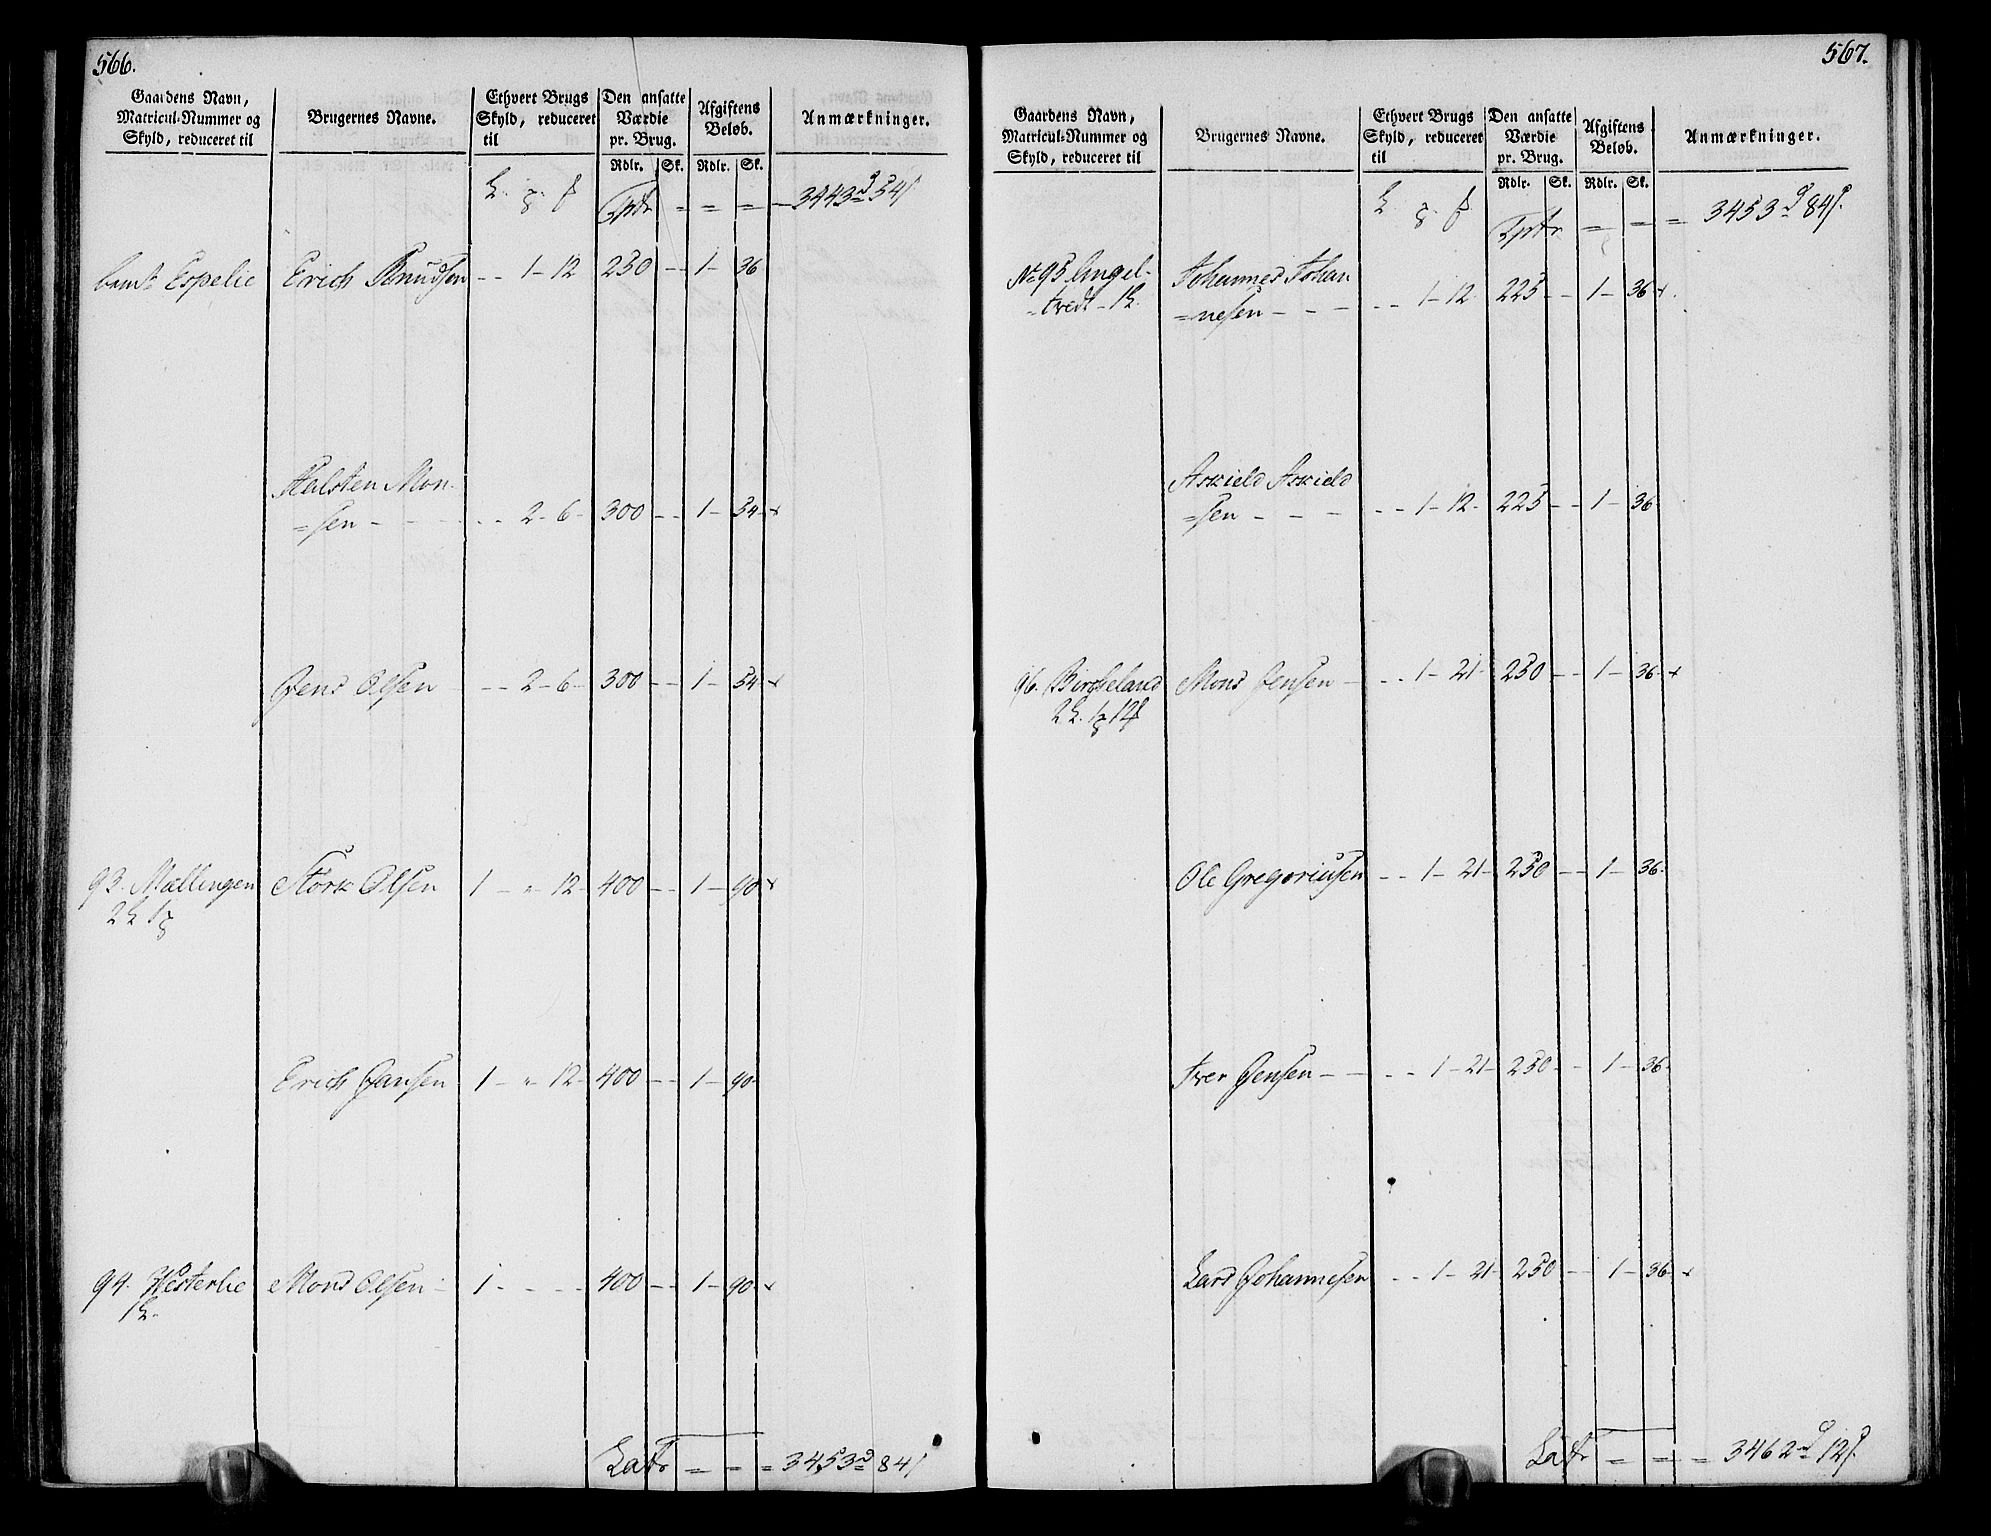 566.
Gaardens Navn,
Matricul-Nummer og
Skyld, reduceret til
Brugernes Navne.
Ethvert Brugs
Skyld, reduceret
til
Den ansatte
Værdie
pr. Brug.
Rdlr. Sk.
Afgiftens
Beløb.
Rdlr. Sk.
Anmærkninger.
Tptr = = = 3443 54
Espelie Erich Knudsen - - 1 - 12 250 - - 1 - 36
Halsten Mon-
=sen - - - - - 2 - 6 - 300 - - 1 - 54 - x
Jens Olsen - - - 2 - 6 - 300 - - 1 - 54 - x
93. Mællingen Stork Olsen 1 - " 12 - 400 - - 1 - 90 x
Erich Jansen 1 - " 12 - 400 - - 1 - 90 -
94. Westerlie Mons Olsen - 1 - - - - 400 - - 1 - 90 - x
Latr = = = 3453 84
567.
Gaardens Navn,
Matricul-Nummer og
Skyld, reduceret til
Brugernes Navne.
Ethvert Brugs
Skyld, reduceret
til
Den ansatte
Værdie
pr. Brug.
Rdlr. Sk.
Afgiftens
Beløb.
Rdlr. Sk.
Anmærkninger.
Tptr = = = 3453 84
No 95 Angel- Johannes Johan
-tvedt - 1 =nesen - - - - - 1 - 12 225 - - 1 - 36 x
Askield Askield
=sen - - - - - 1 - 12 - 225 - - 1 - 36
96. Bircheland Mons Jensen - - - 1 - 21 - 250 - - 1 - 36 - x
Ole Gregoriusen - - 1 - 21 - 250 - - 1 - 36 -
Iver Jensen - - - - 1 - 21 - 250 - - 1 - 36 -
Lars Johannesen - - 1 - 21 - 250 - - 1 - 36 - x
Latr = = = 3462 12